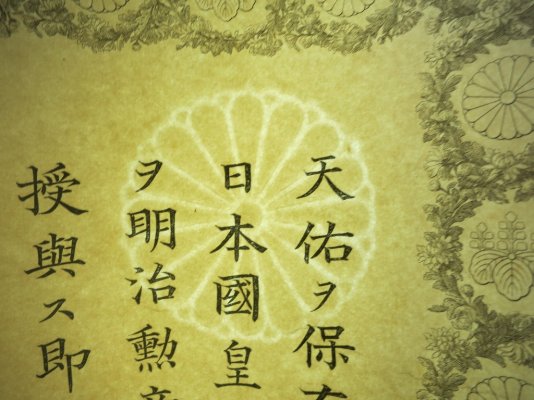 天佑ヲ保
日本國皇
ヲ明治勲
授與ス即